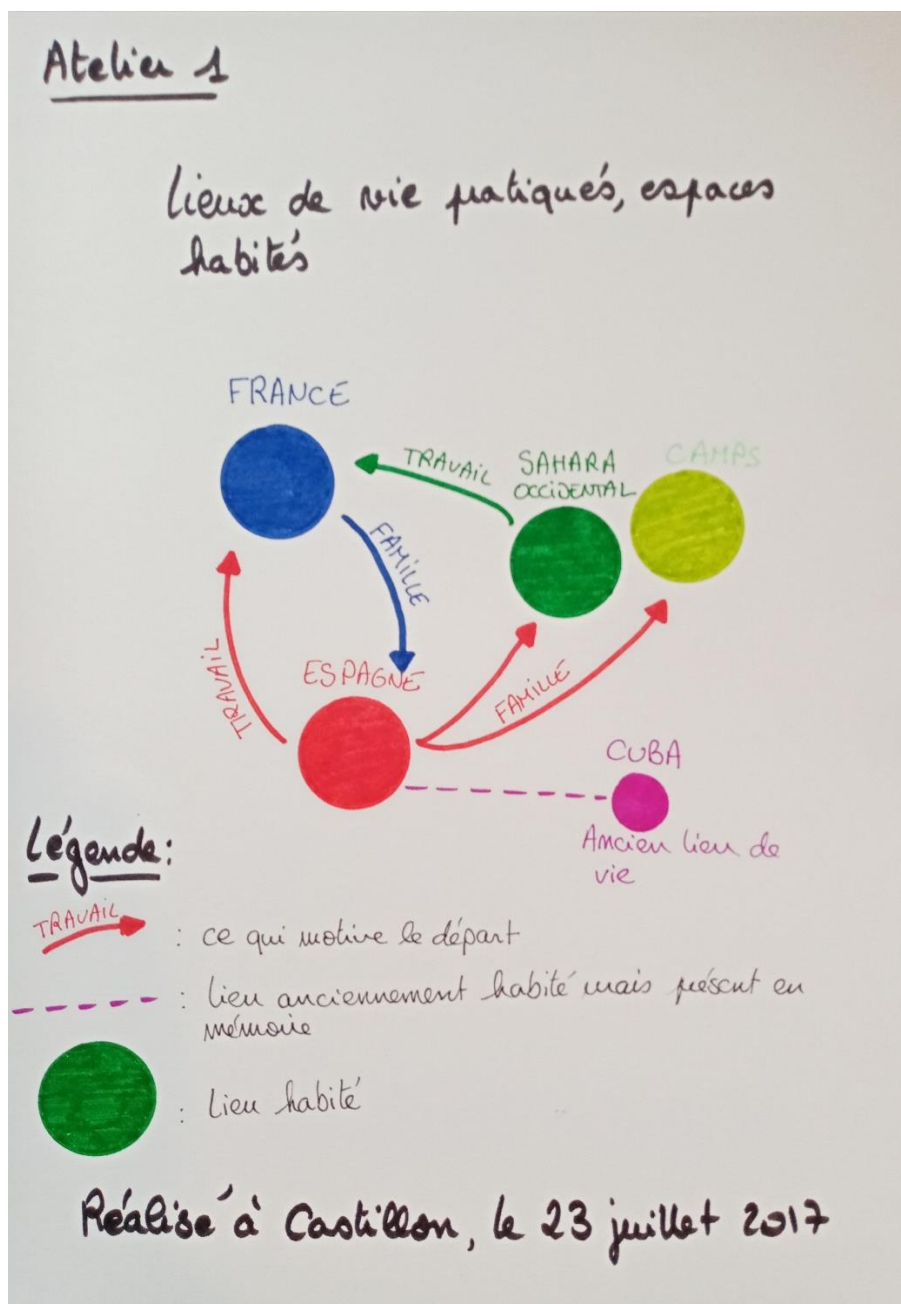 Atelier 1
lieux de vie pratiqués, espaces
habités
FRANCE
TRAVAIL
SAHARA
OCCIDENTAL
CAMPS
FAMILLE
TRAVAIL
ESPAGNE
FAMILLE
CUBA
Ancien lieu de
vie
Légende:
TRAVAIL
: ce qui motive le départ
: lieu anciennement habité mais présent en
mémoire
: lieu habité
Réalisé à Castillon, le 23 juillet 2017